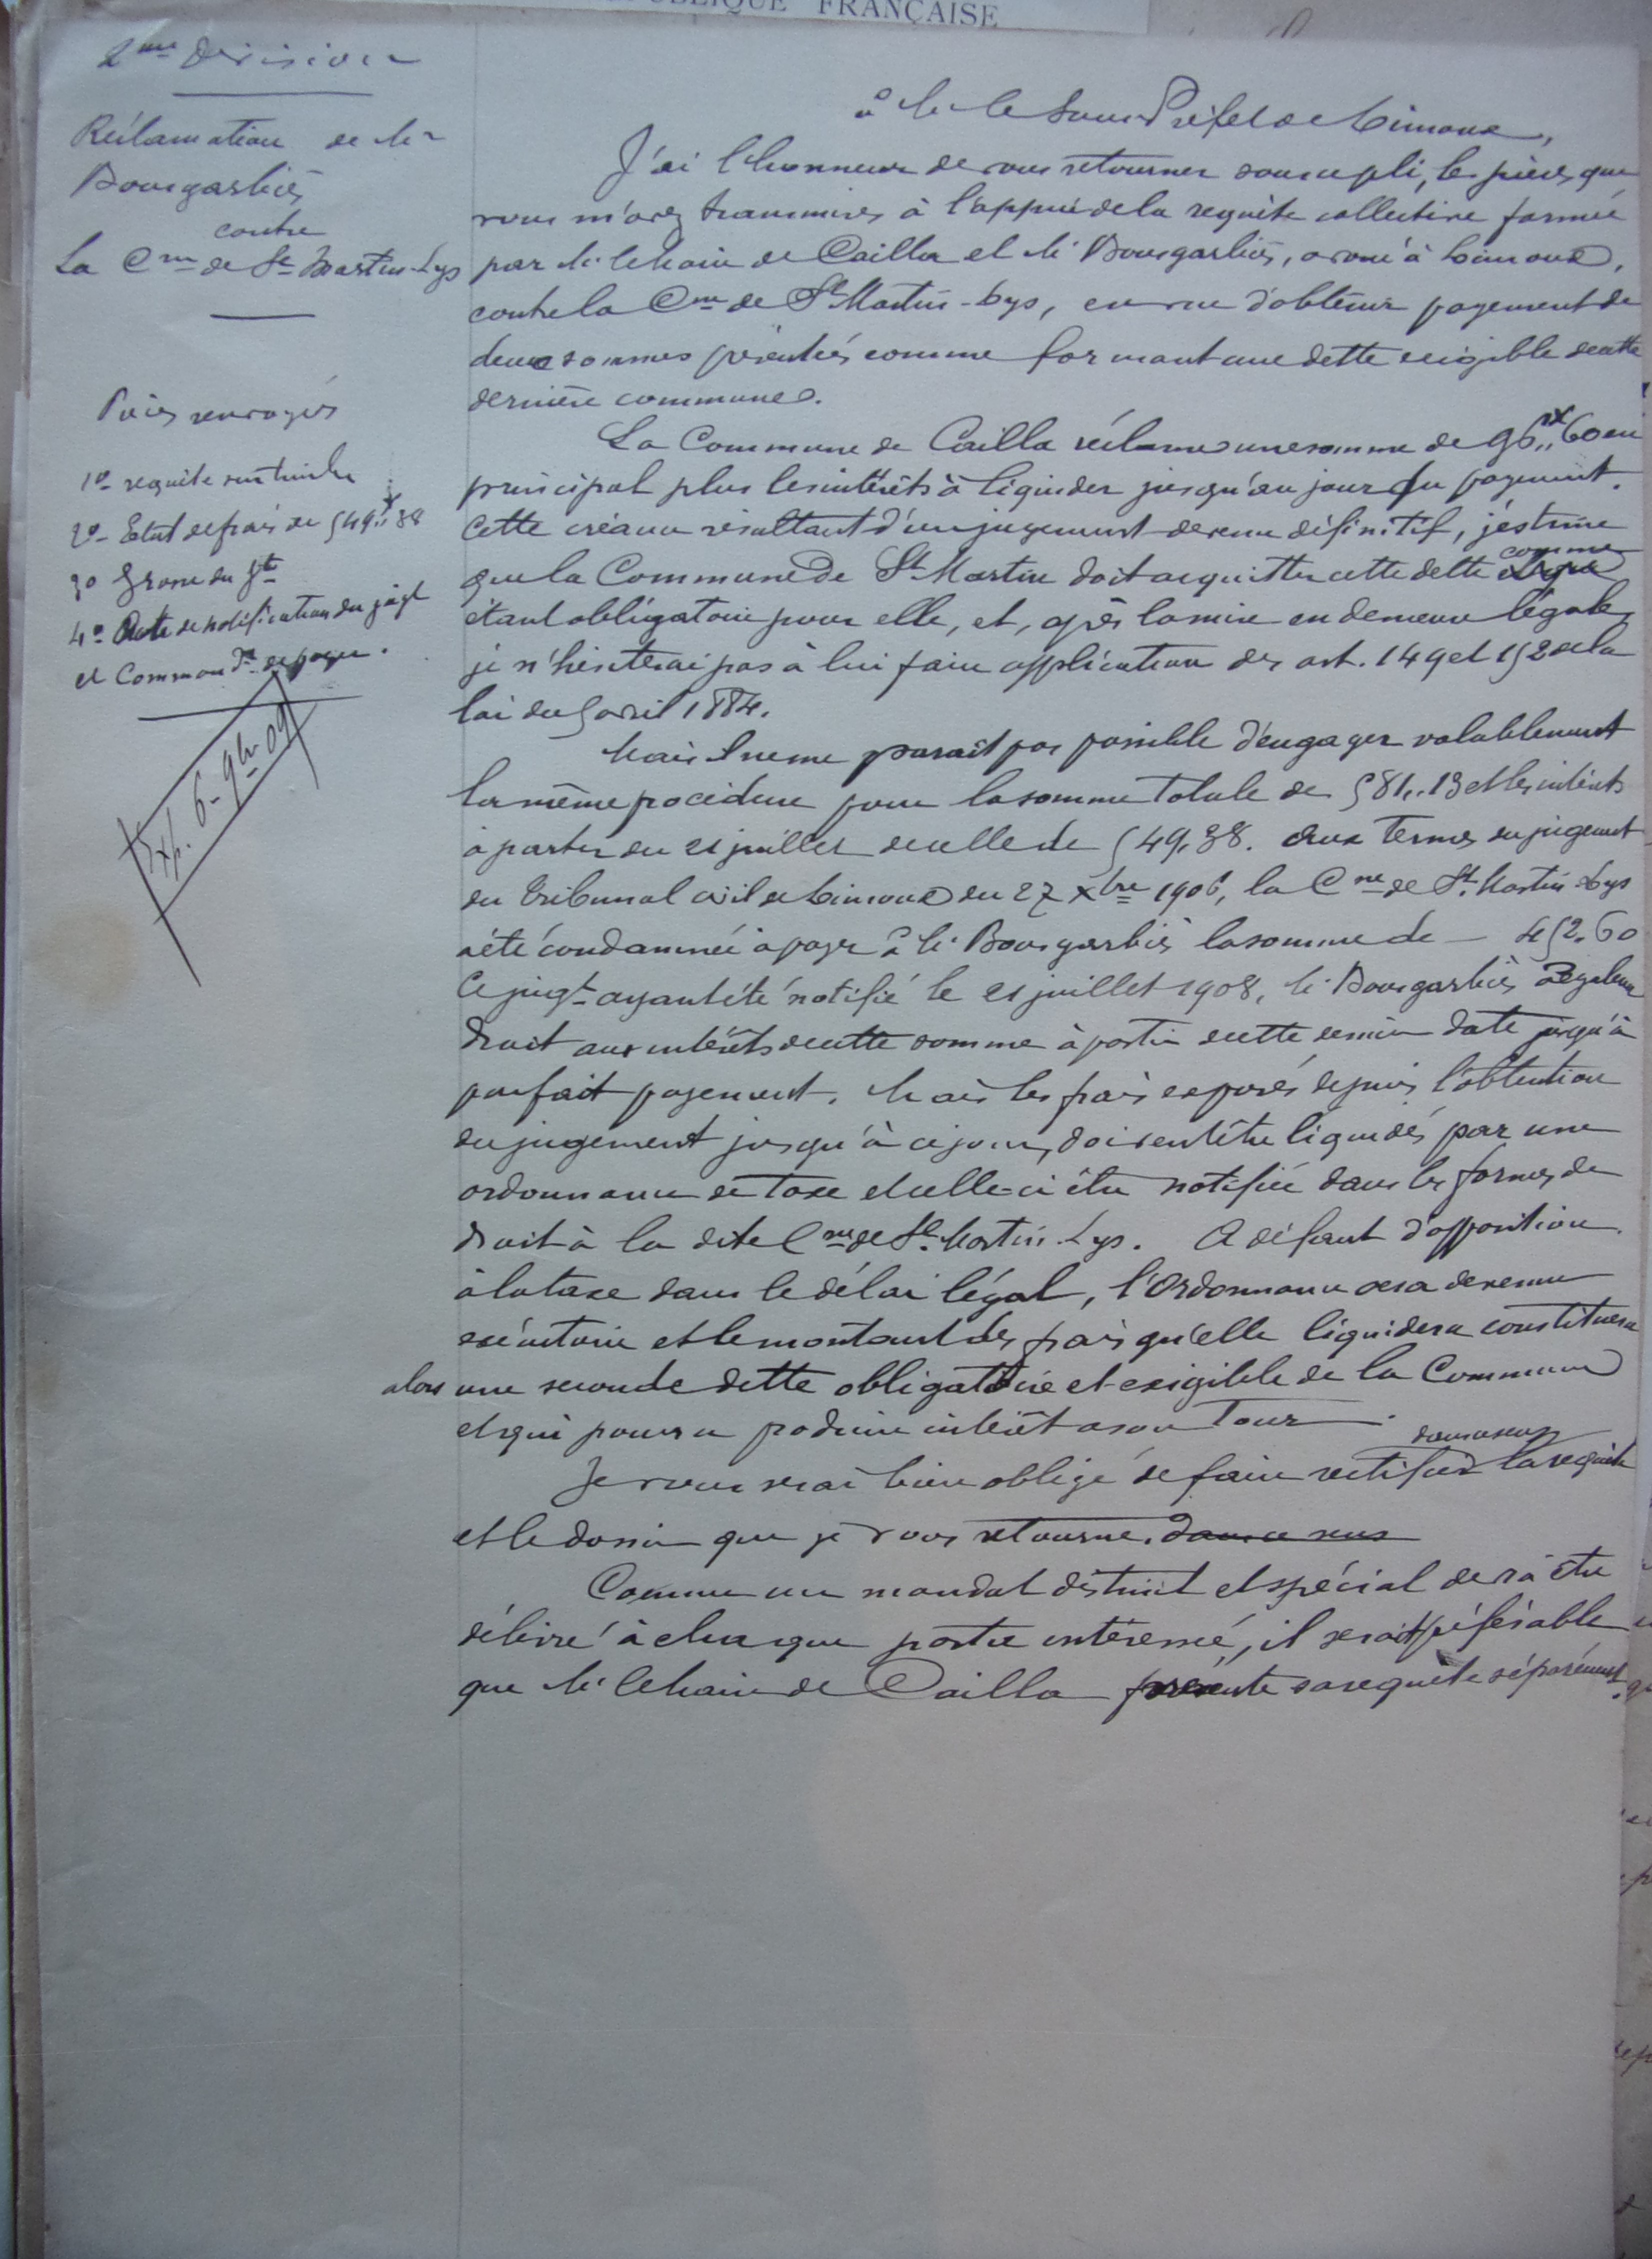 RÉPUBLIQUE FRANÇAISE
2me Division
Réclamation de Mr
Bourgarbiès
contre
La Cne de St Martin-Lys
Pièces renvoyées
1º requête sur timbre
2º Etat de frais de 549f,,38
3º Grosse du Jgt
4º Acte de notification du jugt
et Commandt de payer.
Exp. 6-9br 09
à M le Sous Préfet de Limoux,
J'ai l'honneur de vous retourner sous ce pli, les pièces que
vous m'avez transmises à l'appui de la requête collective formée
par M. le Maire de Cailla et M. Bourgarbiès, avoué à Limoux,
contre la Cne de St Martin-Lys, en vue d'obtenir payement de
deux sommes présentées comme formant une dette exigible de cette
dernière commune.
La Commune de Cailla réclame une somme de 96f,,60 en
principal plus les intérêts à liquider jusqu'au jour du payement.
Cette créance résultant d'un jugement devenu définitif, j'estime
que la Commune de St Martin doit acquitter cette dette comme
étant obligatoire pour elle, et, après la mise en demeure légale,
je n'hésiterai pas à lui faire application des art. 149 et 152 de la
loi du 5 avril 1884.
Mais il ne me parait pas possible d'engager valablement
la même procédure pour la somme totale de 581,,13 et les intérêts
à partir du 21 juillet de celle de 549,38. Aux termes du jugement
du Tribunal civil de Limoux du 27 Xbre 1906, la Cne de St. Martin Lys
a été condamnée à payer à M. Bourgarbiès la somme de — 452,60
Ce jugt ayant été notifié le 21 juillet 1908, M. Bourgarbiès a également
droit aux intérêts de cette somme à partir de cette dernière date jusqu'à
parfait payement. Mais les frais exposés depuis l'obtention
du jugement jusqu'à ce jour, doivent être liquidés par une
ordonnance de taxe et celle-ci être notifiée dans les formes de
droit à la dite Cne de St. Martin Lys. A défaut d'opposition
à la taxe dans le délai légal, l'Ordonnance sera devenue
exécutoire et le montant des frais qu'elle liquidera constituera
alors une seconde dette obligatoire et exigible de la Commune
et qui pourra produire intérêt à son tour.
Je vous serai bien obligé de faire rectifier dans ce sens la requête
et le dossier que je vous retourne. dans ce sens
Comme un mandat distinct et spécial devra être
délivré à chaque partie intéressée, il serait préférable
que M. le Maire de Cailla présente sa requête séparément.